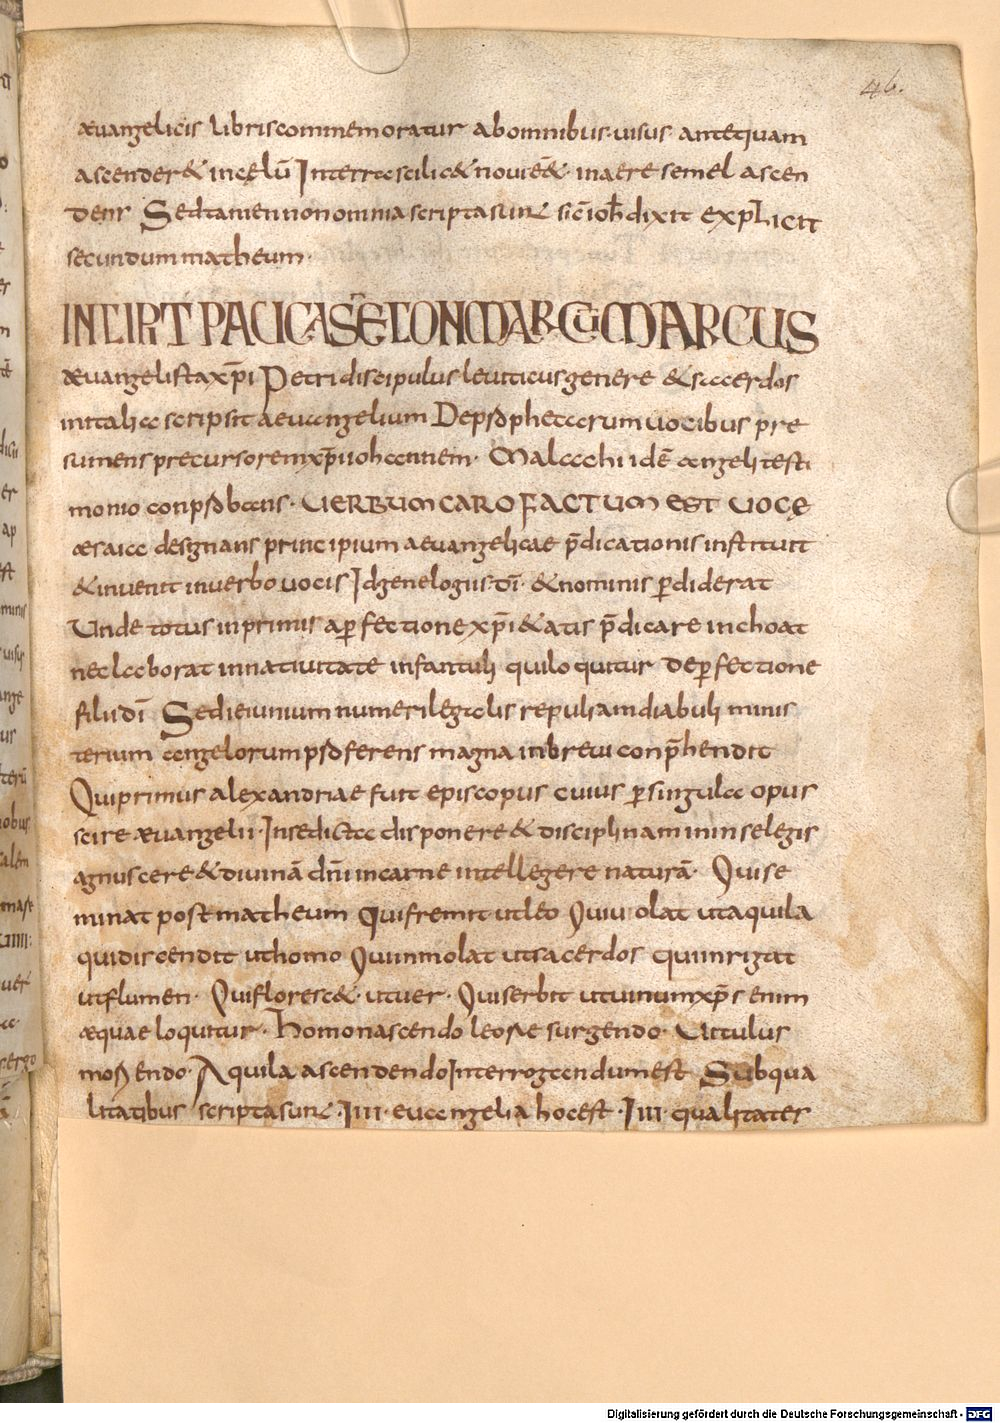 46.
æuangelicis libris commemoratur ab omnibus uisus antequam
ascender& in cęlū Interra scilic& nouiē& in aere semel ascen
denr Sed tamen non omnia scripta sunt sic̄ ioh̄ dixit explicit
secundum matheum·
INCIPIT PAUCA SEC̄ON MARCŪ MARCUS
æuangelista xp̄i Petri discipulus leuiticus genere & sacerdos
in italia scripsit aeuangelium De prophetarum uocibus pre
sumens precursorem xp̄i iohannem· Malachi idē angeli testi
monio conprobans· UERBUM CARO FACTUM EST UOCĘ
æsaiae designans principium aeuangelicae p̄dicationis instituit
& inuenit in uerbo uocis Id genelogiis· dī· & nominis perdiderat
Unde totus in primis a perfectione xp̄i & atis p̄dicare inchoat
nec laborat in natiuitate infantuli qui loquitur de perfectione
filii dī Sed ieiunium numeri legalis repulsam diabuli minis
terium angelorum proferens magna in breui conp̄hendit
Qui primus alexandriae fuit episcopus cuius per singula opus
scire æuangelii· In se dicta disponere & disciplinam in in se legis
agnuscere & diuinā dn̄i in carne intellegere naturā· Qui se
minat post matheum Qui fremit ut leo Qui uolat ut aquila
qui discendit ut homo Qui inmolat ut sacerdos qui inrigat
ut flumen· Qui floresc&· ut uer· Qui serbit ut uinum xp̄s enim
æquae loquitur· homo nascendo leo surgendo· Uitulus
moriendo· Aquila ascendendo Interrogandum est Sub qua
litatibus scripta sunt ·IIII· euangelia hoc est ·IIII· qualitates
Digitalisierung gefördert durch die Deutsche Forschungsgemeinschaft - DFG